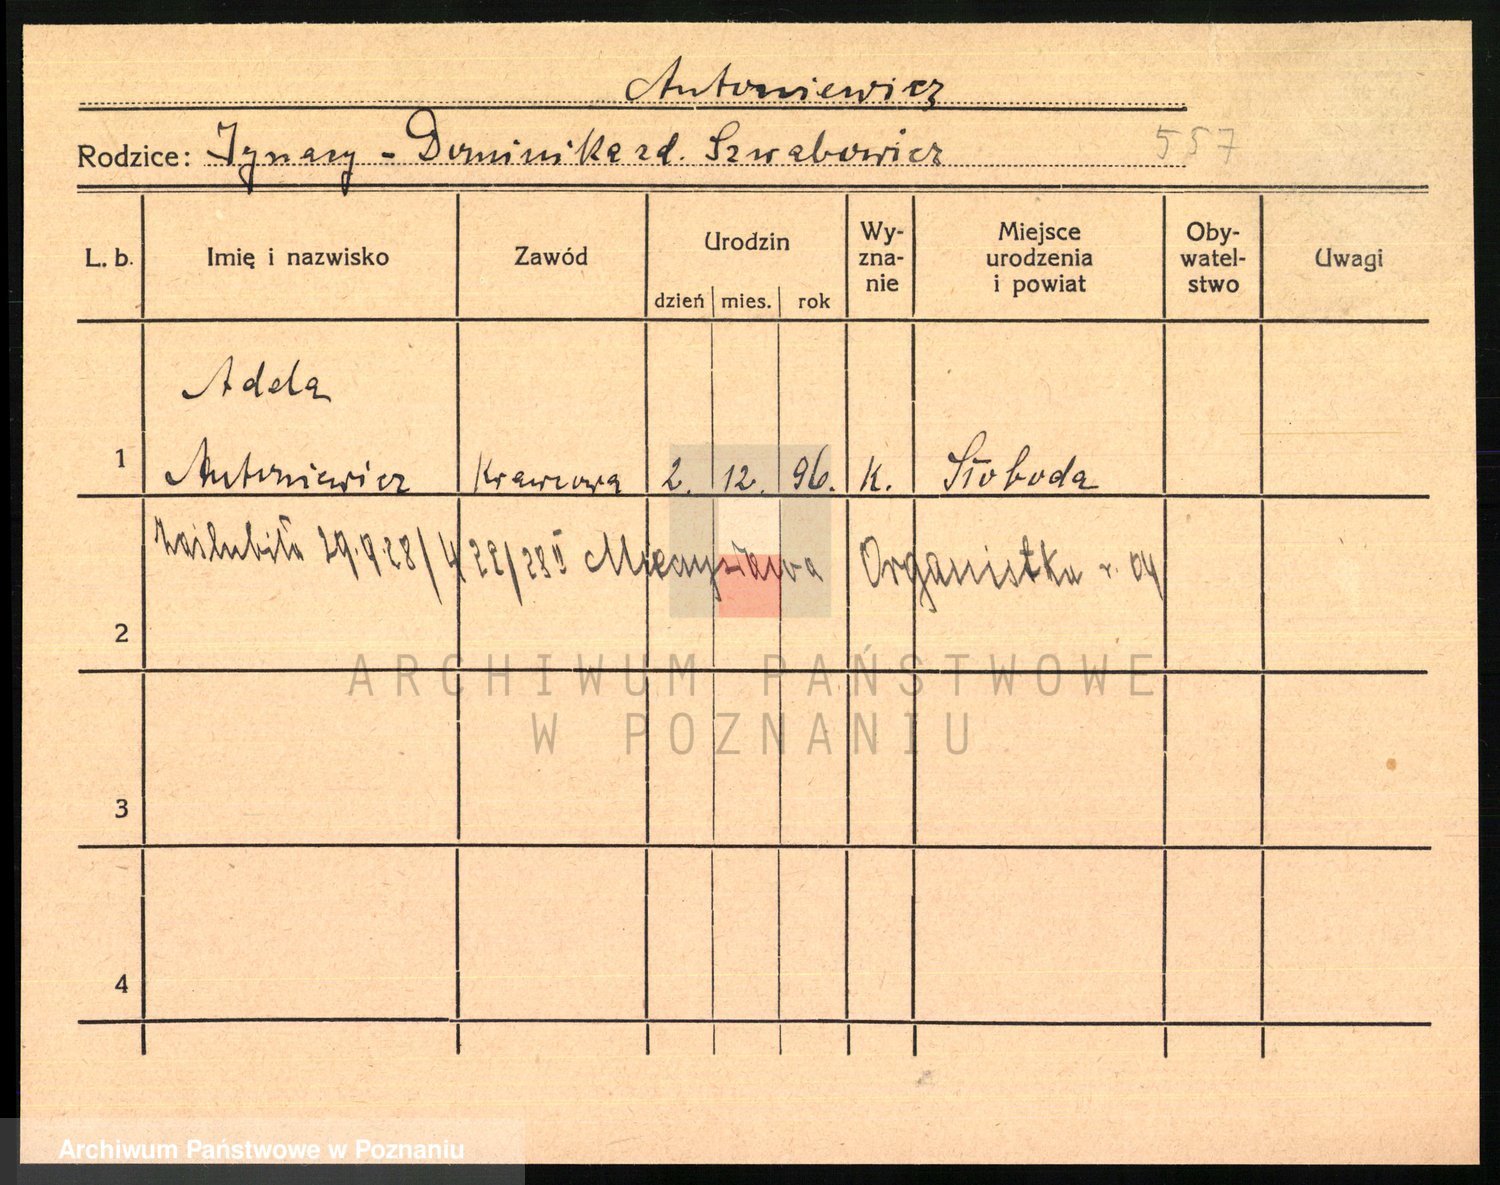 Antoniewicz
Rodzice: Ignacy - Dominika zd. Szwabowicz 557
L. b. Imię i nazwisko Zawód Urodzin dzień mies. rok Wy-zna-nie Miejsce urodzenia i powiat Oby-watel-stwo Uwagi
Adela
1 Antoniewicz Krawcowa 2. 12. 96. K. Słoboda
Zaślubiła 29.9.28/4 22/28 II Mieczysława Organistka r. 04
2
3
4
ARCHIWUM PAŃSTWOWE
W POZNANIU
Archiwum Państwowe w Poznaniu